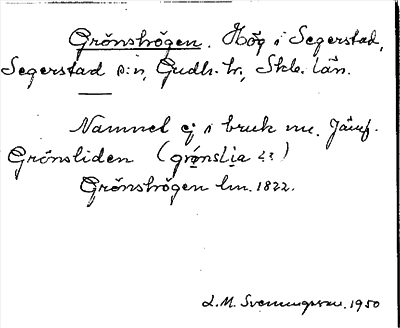 Grönshögen. Hög i Segerstad,
Segerstad s:n, Gudh. hr, Skb. län.
Namnet ej i bruk nu. Jämf.
Grönsliden (grónslia)
Grönshögen lm. 1822.
L.M. Svenungsson. 1950